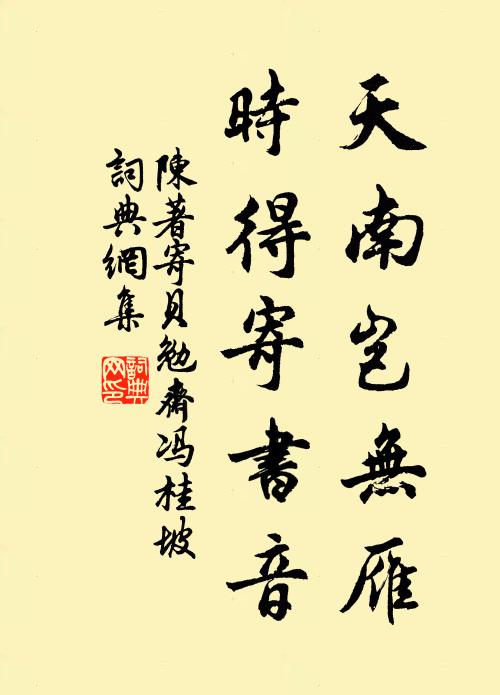 天南岂無雁
時得寄書音
陳著寄貝勉齋冯桂坡
詞典網集
詞典
网印